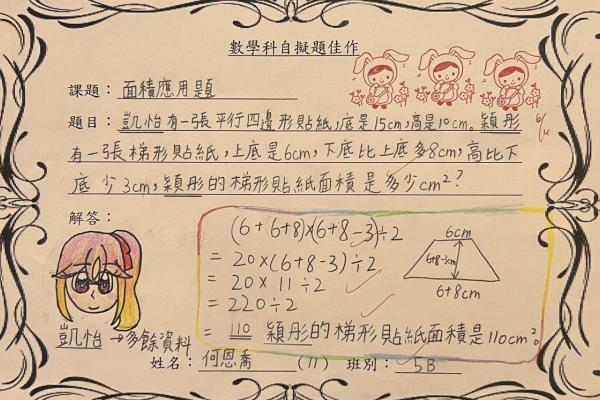 數學科自擬題佳作
課題：面積應用題
題目：凱怡有一張平行四邊形貼紙，底是15cm，高是10cm。穎彤
有一張梯形貼紙，上底是6cm，下底比上底多8cm，高比下
底少3cm，穎彤的梯形貼紙面積是多少cm²？
解答：
(6+(6+8)×(6+8-3)÷2
= 20×(6+8-3)÷2
= 20×11÷2
= 220÷2
= 110 穎彤的梯形貼紙面積是110cm²。
6cm
6+8-3cm
6+8cm
凱怡→多餘資料
姓名：何恩喬(11) 班別：5B